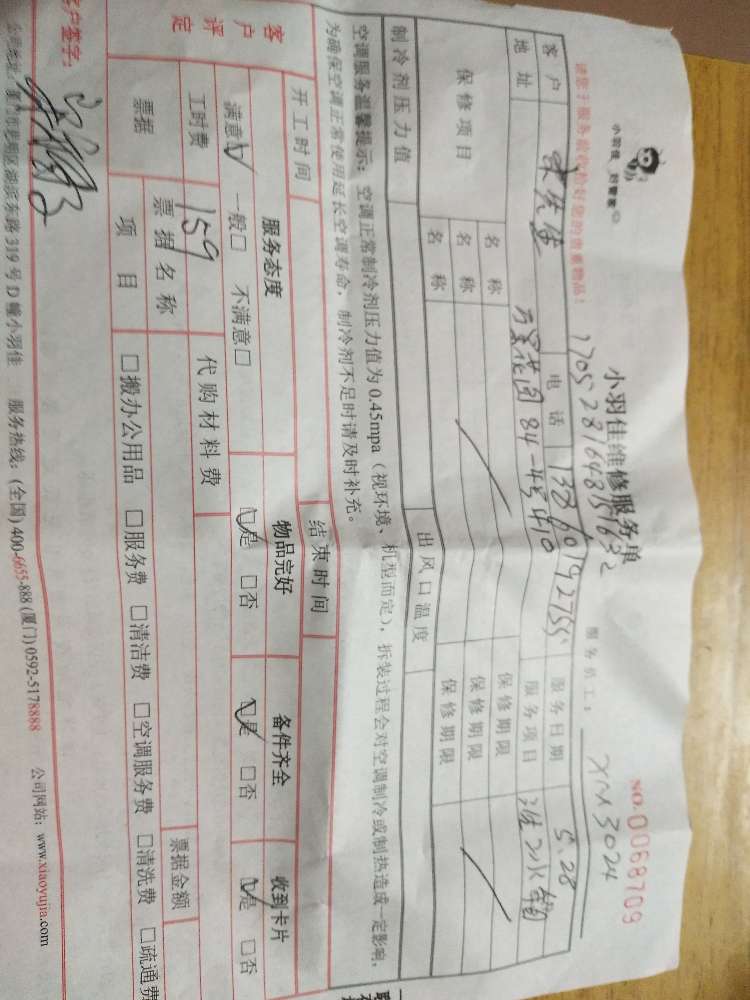 小羽佳 好管家
小羽佳维修服务单
NO. 0068709
170528164851632
服务员工: XM3024
请您于服务前收拾好您的贵重物品!
客户 先生 电话 13860192755 服务日期 5.28
地址 万景花园84-4号410 服务项目
保修项目 名称 保修期限
名称 保修期限
名称 保修期限
制冷剂压力值 出风口温度
空调服务温馨提示: 空调正常制冷剂压力值为0.45mpa (视环境、机型而定), 拆装过程会对空调制冷或制热造成一定影响,
为确保空调正常使用延长空调寿命, 制冷剂不足时请及时补充。
开工时间 结束时间
客户评定 服务态度 物品完好 备件齐全 收到卡片
满意☑ 一般□ 不满意□ ☑是 □否 ☑是 □否 ☑是 □否
工时费 159 代购材料费
票据 票据名称 票据金额
项目 □搬办公用品 □服务费 □清洁费 □空调服务费 □清洗费 □疏通费
客户签字:
公司地址: 厦门市思明区湖滨东路319号D幢小羽佳 服务热线: (全国) 400-6655-888 (厦门) 0592-5178888 公司网站: www.xiaoyujia.com